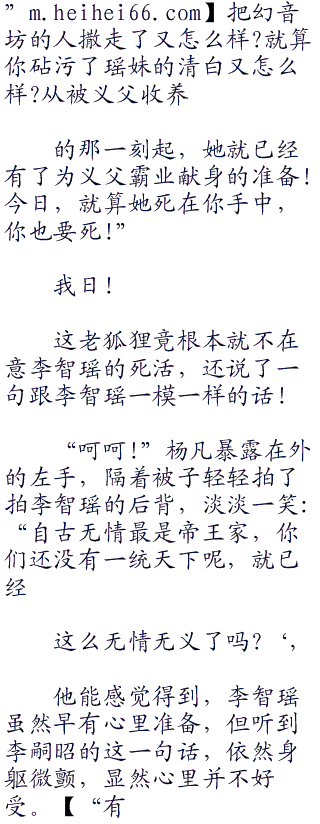 ”m.heihei66.com】把幻音
坊的人撒走了又怎么样?就算
你砧污了瑶妹的清白又怎么
样?从被义父收养
的那一刻起，她就已经
有了为义父霸业献身的准备!
今日，就算她死在你手中，
你也要死!”
我日!
这老狐狸竟根本就不在
意李智瑶的死活，还说了一
句跟李智瑶一模一样的话!
“呵呵!”杨凡暴露在外
的左手，隔着被子轻轻拍了
拍李智瑶的后背，淡淡一笑:
“自古无情最是帝王家，你
们还没有一统天下呢，就已
经
这么无情无义了吗？‘,
他能感觉得到，李智瑶
虽然早有心里准备，但听到
李嗣昭的这一句话，依然身
躯微颤，显然心里并不好
受。【“有